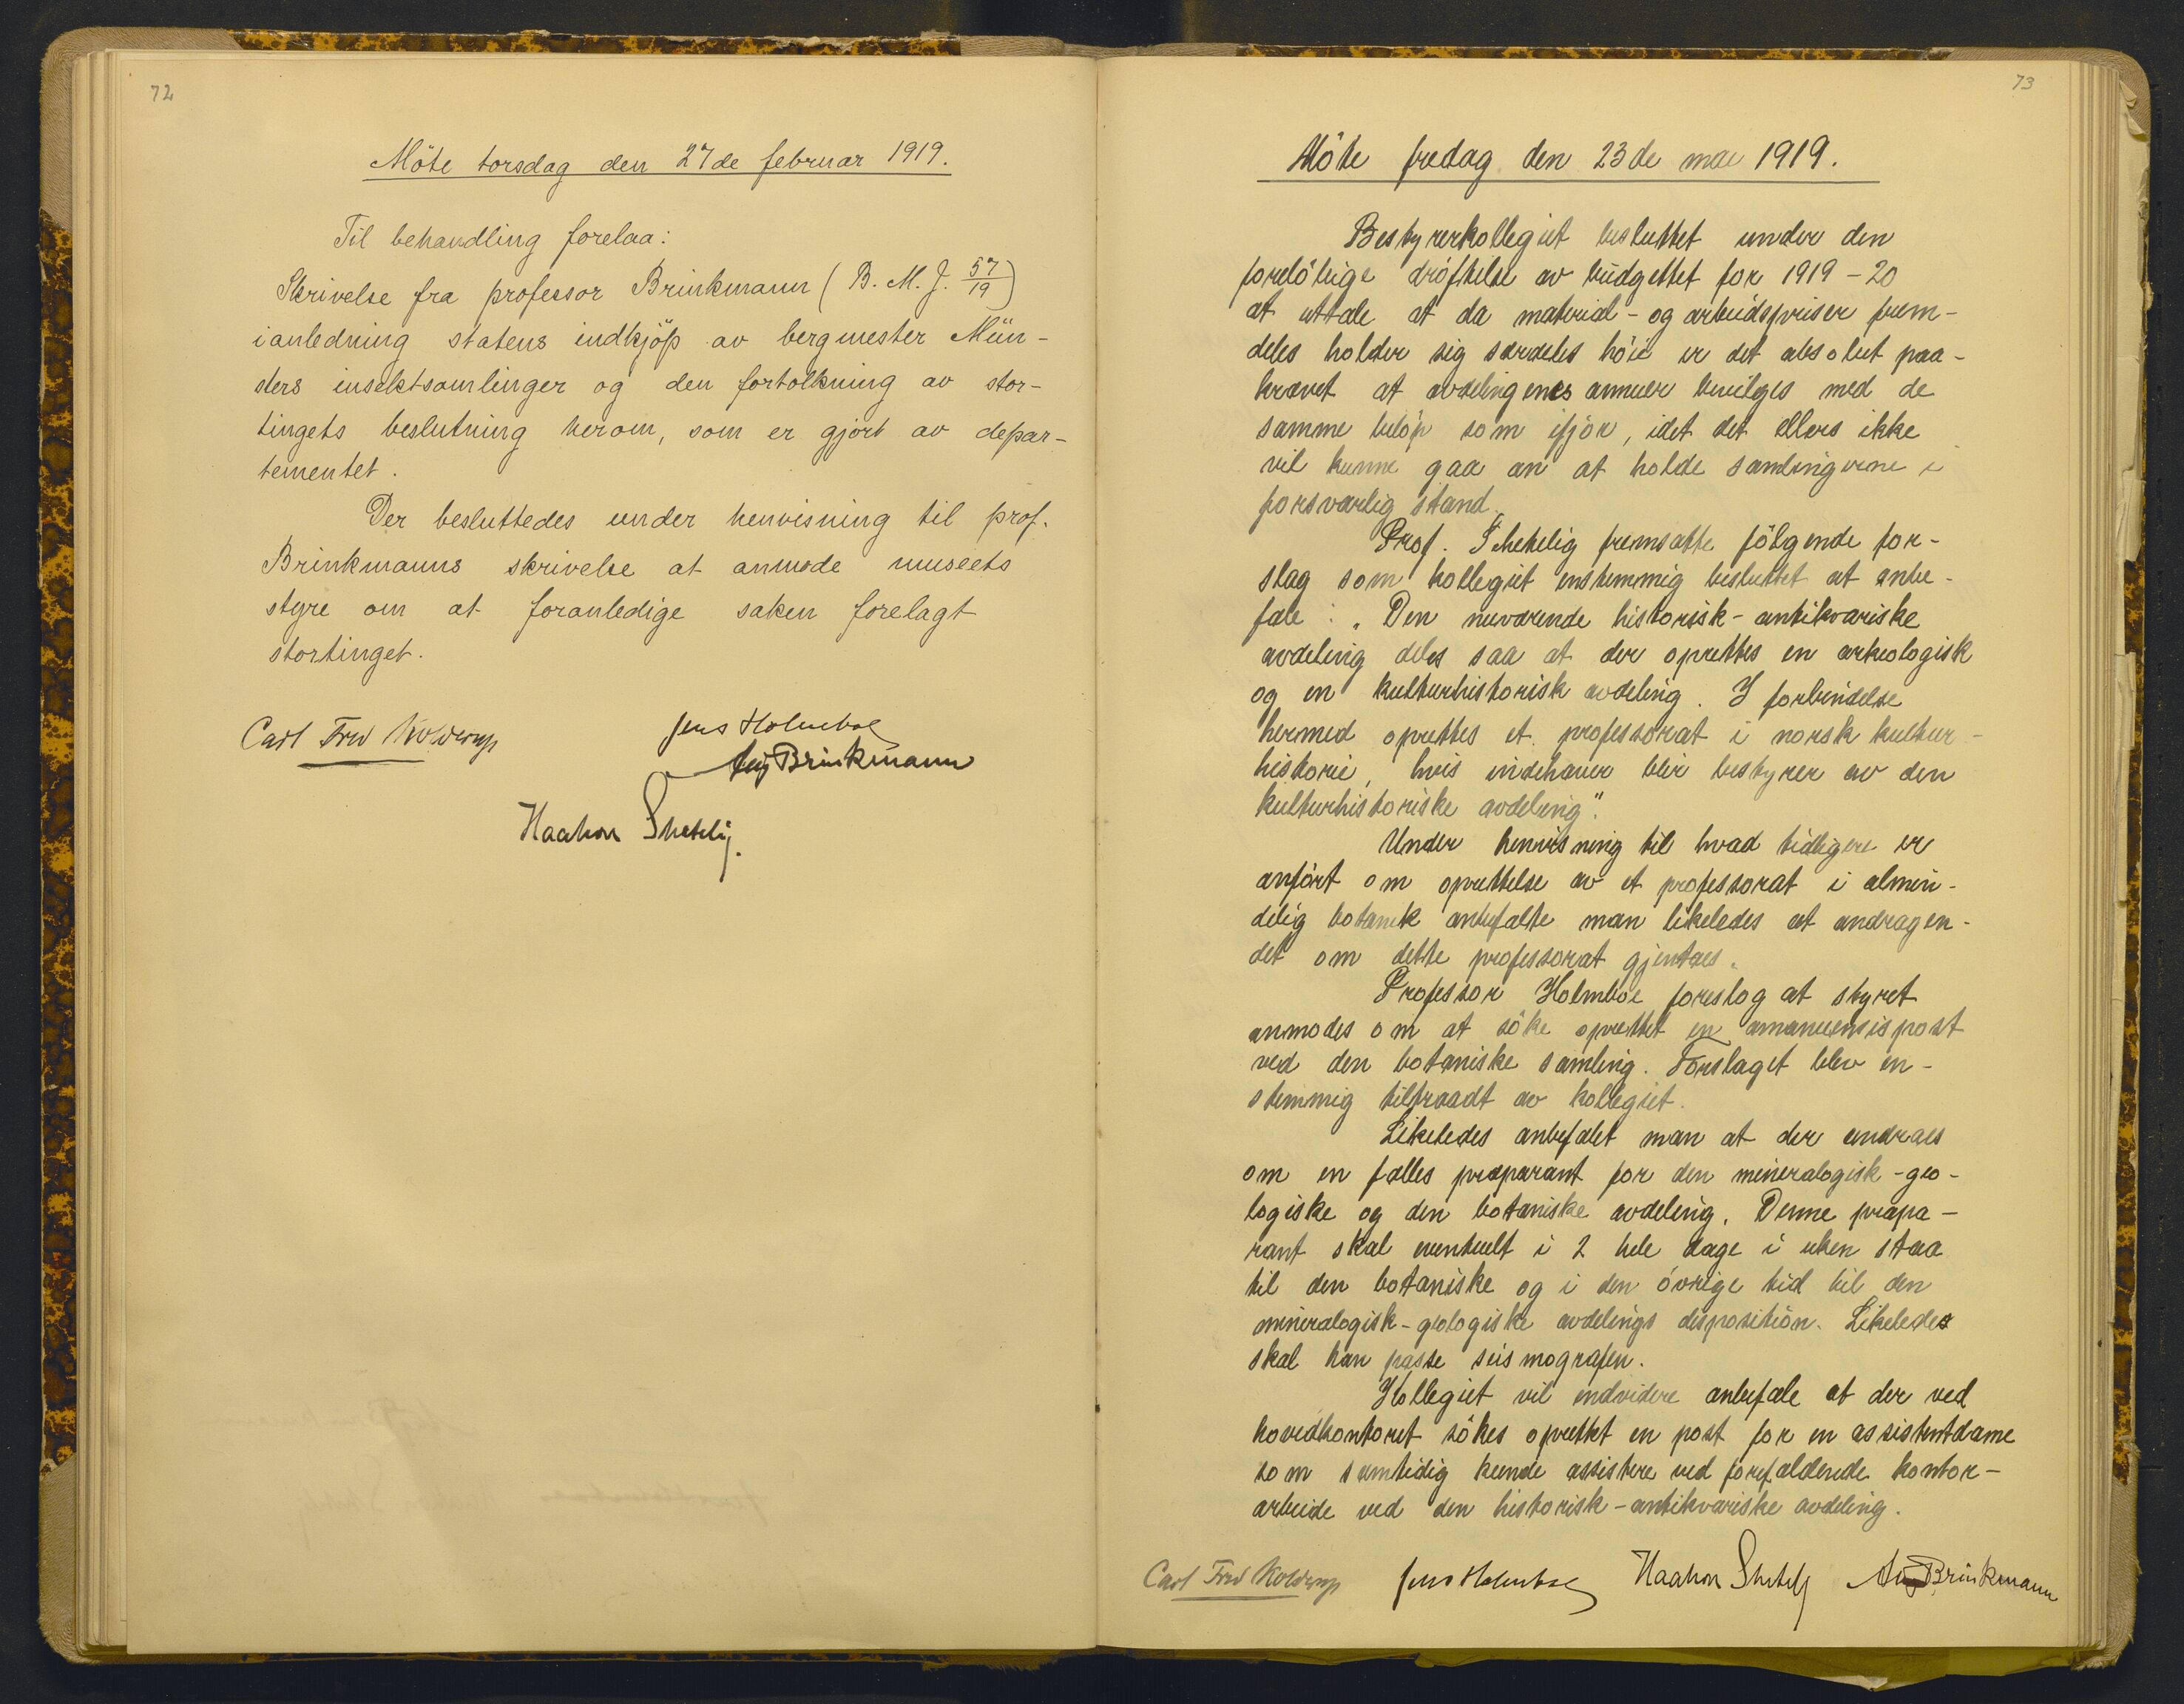 72
Möte torsdag den 27de februar 1919.
Til behandling forelaa:
Skrivelse fra professor Brinkmann (B. M. J. 57/19)
i anledning statens indkjöp av bergmester Mün-
sters insektsamlinger og den fortolkning av stor-
tingets beslutning herom, som er gjort av depar-
tementet.
Der besluttedes under henvisning til prof.
Brinkmanns skrivelse at anmode museets
styre om at foranledige saken forelagt
stortinget.
Carl Fred Kolderup
Jens Holmboe
Aug Brinkmann
Haakon Shetelig.
73
Möte fredag den 23de mai 1919.
Bestyrerkollegiet besluttet under den
forelöbige dröftelse av budgettet for 1919-20
at uttale at da material- og arbeidspriser frem-
deles holder sig særdeles höie er det absolut paa-
krævet at avdelingenes annuer bevilges med de
samme belöp som ifjor, idet det ellers ikke
vil kunne gaa an at holde samlingerne i
forsvarlig stand.
Prof. Schetelig fremsatte fölgende for-
slag som kollegiet enstemmig besluttet at anbe-
fale: „Den nuværende historisk-antikvariske
avdeling deles saa at der oprettes en arkeologisk
og en kulturhistorisk avdeling. I forbindelse
hermed oprettes et professorat i norsk kultur-
historie, hvis indehaver blir bestyrer av den
kulturhistoriske avdeling".
Under henvisning til hvad tidligere er
anfört om oprettelse av et professorat i almin-
delig botanik anbefalte man likeledes at andragen-
det om dette professorat gjentaes.
Professor Holmboe foreslog at styret
anmodes om at söke oprettet en amanuensispost
ved den botaniske samling. Forslaget blev en-
stemmig tiltraadt av kollegiet.
Likeledes anbefalet man at der andraes
om en fælles præparant for den mineralogisk-geo-
logiske og den botaniske avdeling. Denne præpa-
rant skal eventuelt i 2 hele dage i uken staa
til den botaniske og i den övrige tid til den
mineralogisk-geologiske avdelings disposition. Likeledes
skal han passe seismografen.
Kollegiet vil endvidere anbefale at der ved
hovedkontoret sökes oprettet en post for en assistentdame
som samtidig kunde assistere ved forefaldende kontor-
arbeide ved den historisk-antikvariske avdeling.
Carl Fred Kolderup Jens Holmboe Haakon Shetelig Aug Brinkmann